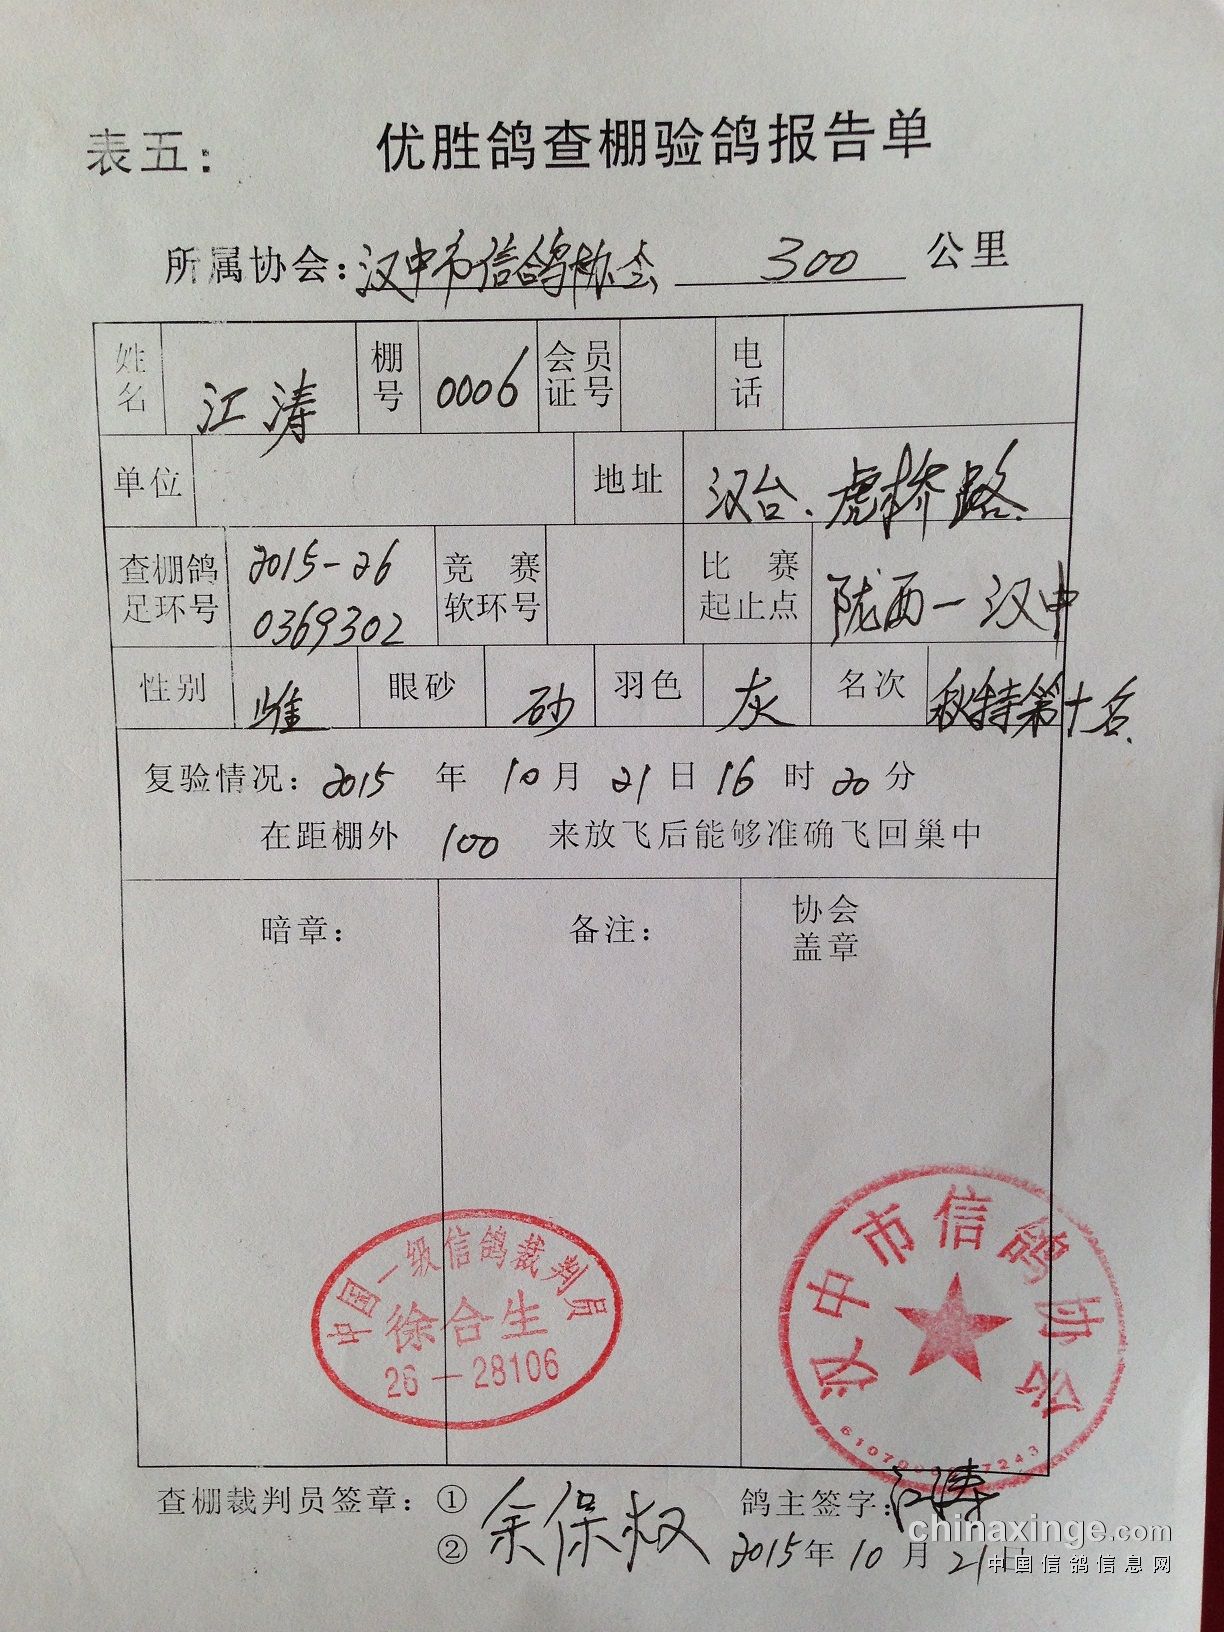 表五： 优胜鸽查棚验鸽报告单
所属协会：汉中市信鸽协会 300 公里
姓名 江涛 棚号 0006 会员证号 电话
单位 地址 汉台、虎桥路
查棚鸽足环号 2015-26 0369302 竞赛软环号 比赛起止点 陇西－汉中
性别 雌 眼砂 砂 羽色 灰 名次 秋特第十名
复验情况：2015 年 10 月 21 日 16 时 20 分
在距棚外 100 来放飞后能够准确飞回巢中
暗章： 备注： 协会盖章
中国一级信鸽裁判员
徐合生
26－28106
汉中市信鸽协会
查棚裁判员签章：① 鸽主签字：江涛
② 余保权 2015年 10 月 21 日
chinaxinge.com
中国信鸽信息网